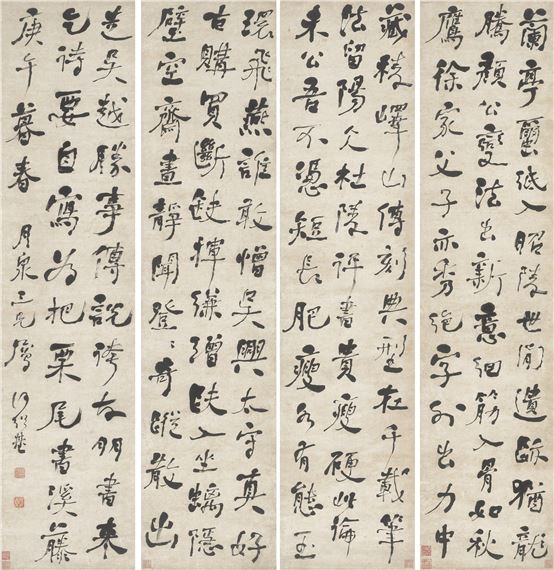 蘭亭蠒紙入昭陵世間遺跡猶龍
騰顏公變法出新意細筋入骨如秋
鷹徐家父子亦秀絕字外出力中
藏稜嶧山傳刻典型在千載筆
法留陽仌杜陵評書貴瘦硬此論
未公吾不憑短長肥瘦各有態玉
環飛燕誰敢憎吳興太守真好
古購買斷缺揮縑繒趺入坐螭隱
壁空齋晝靜聞登〻奇蹤散出
走吳越勝事傳說誇友朋書來
乞詩要自寫為把栗尾書溪藤
庚午暮春 月泉三兄屬 何紹基